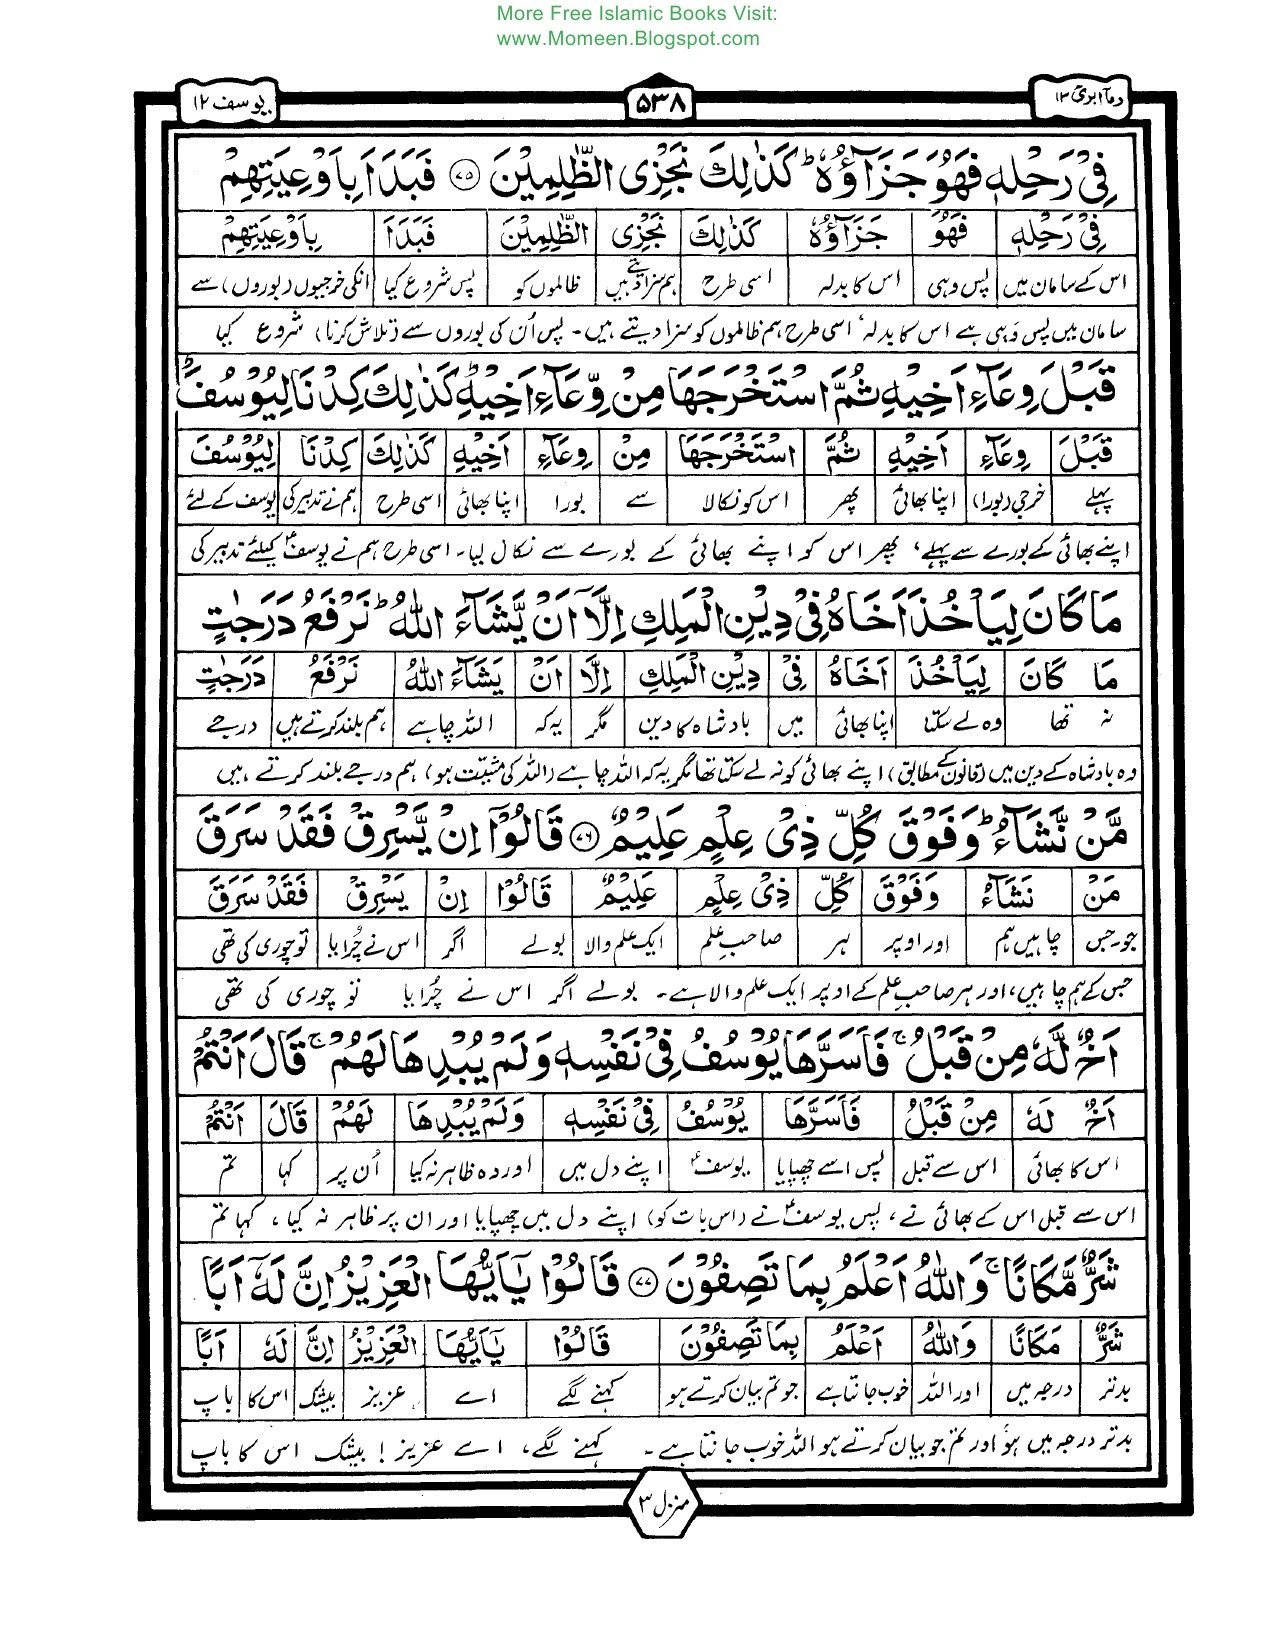 More Free Islamic Books Visit:
www.Momeen.Blogspot.com
وما ابرئ ۱۳
۵۳۸
یوسف ۱۲
فِیْ رَحْلِهٖ فَهُوَ جَزَآؤُهٗ ؕ كَذٰلِكَ نَجْزِی الظّٰلِمِیْنَ ﴿۷۵﴾ فَبَدَاَ بِاَوْعِیَتِهِمْ
فِیْ رَحْلِهٖ فَهُوَ جَزَآؤُهٗ كَذٰلِكَ نَجْزِی الظّٰلِمِیْنَ فَبَدَاَ بِاَوْعِیَتِهِمْ
اس کے سامان میں پس وہی اس کا بدلہ اسی طرح ہم سزا دیتے ہیں ظالموں کو پس شروع کیا انکی خرجیوں (بوروں) سے
سامان میں پس وہی ہے اس کا بدلہ، اسی طرح ہم ظالموں کو سزا دیتے ہیں۔ پس اُن کی بوروں سے (تلاش کرنا) شروع کیا
قَبْلَ وِعَآءِ اَخِیْهِ ثُمَّ اسْتَخْرَجَهَا مِنْ وِّعَآءِ اَخِیْهِ ؕ كَذٰلِكَ كِدْنَا لِیُوْسُفَ ؕ
قَبْلَ وِعَآءِ اَخِیْهِ ثُمَّ اسْتَخْرَجَهَا مِنْ وِعَآءِ اَخِیْهِ كَذٰلِكَ كِدْنَا لِیُوْسُفَ
پہلے خرجی (بورا) اپنا بھائی پھر اس کو نکالا سے بورا اپنا بھائی اسی طرح ہم نے تدبیر کی یوسف کے لئے
اپنے بھائی کے بورے سے پہلے، پھر اس کو اپنے بھائی کے بورے سے نکال لیا۔ اسی طرح ہم نے یوسفؑ کیلئے تدبیر کی
مَا كَانَ لِیَاْخُذَ اَخَاهُ فِیْ دِیْنِ الْمَلِكِ اِلَّاۤ اَنْ یَّشَآءَ اللّٰهُ ؕ نَرْفَعُ دَرَجٰتٍ
مَا كَانَ لِیَاْخُذَ اَخَاهُ فِیْ دِیْنِ الْمَلِكِ اِلَّاۤ اَنْ یَشَآءَ اللّٰهُ نَرْفَعُ دَرَجٰتٍ
نہ تھا وہ لے سکتا اپنا بھائی میں بادشاہ کا دین مگر یہ کہ اللہ چاہے ہم بلند کرتے ہیں درجے
وہ بادشاہ کے دین میں (قانون کے مطابق) اپنے بھائی کو نہ لے سکتا تھا مگر یہ کہ اللہ چاہے (اللہ کی مشیّت ہو) ہم درجے بلند کرتے ہیں
مَّنْ نَّشَآءُ ؕ وَفَوْقَ كُلِّ ذِیْ عِلْمٍ عَلِیْمٌ ﴿۷۶﴾ قَالُوْۤا اِنْ یَّسْرِقْ فَقَدْ سَرَقَ
مَنْ نَشَآءُ وَفَوْقَ كُلِّ ذِیْ عِلْمٍ عَلِیْمٌ قَالُوْۤا اِنْ یَسْرِقْ فَقَدْ سَرَقَ
جو۔جس چاہیں ہم اور اوپر ہر صاحبِ علم ایک علم والا بولے اگر اس نے چُرایا تو چوری کی تھی
جس کے ہم چاہیں، اور ہر صاحبِ علم کے اوپر ایک علم والا ہے۔ بولے اگر اس نے چُرایا تو چوری کی تھی
اَخٌ لَّهٗ مِنْ قَبْلُ ۚ فَاَسَرَّهَا یُوْسُفُ فِیْ نَفْسِهٖ وَلَمْ یُبْدِهَا لَهُمْ ۚ قَالَ اَنْتُمْ
اَخٌ لَهٗ مِنْ قَبْلُ فَاَسَرَّهَا یُوْسُفُ فِیْ نَفْسِهٖ وَلَمْ یُبْدِهَا لَهُمْ قَالَ اَنْتُمْ
اس کا بھائی اس سے قبل پس اسے چھپایا یوسفؑ اپنے دل میں اور وہ ظاہر نہ کیا اُن پر کہا تم
اس سے قبل اس کے بھائی نے، پس یوسفؑ نے (اس بات کو) اپنے دل میں چھپایا اور ان پر ظاہر نہ کیا، کہا تم
شَرٌّ مَّكَانًا ۚ وَاللّٰهُ اَعْلَمُ بِمَا تَصِفُوْنَ ﴿۷۷﴾ قَالُوْا یٰۤاَیُّهَا الْعَزِیْزُ اِنَّ لَهٗۤ اَبًا
شَرٌّ مَكَانًا وَاللّٰهُ اَعْلَمُ بِمَا تَصِفُوْنَ قَالُوْا یٰۤاَیُّهَا الْعَزِیْزُ اِنَّ لَهٗ اَبًا
بدتر درجہ میں اور اللہ خوب جانتا ہے جو تم بیان کرتے ہو کہنے لگے اے عزیز بیشک اس کا باپ
بدتر درجہ میں ہو، اور تم جو بیان کرتے ہو اللہ خوب جانتا ہے۔ کہنے لگے، اے عزیز! بیشک اس کا باپ
منزل ۳